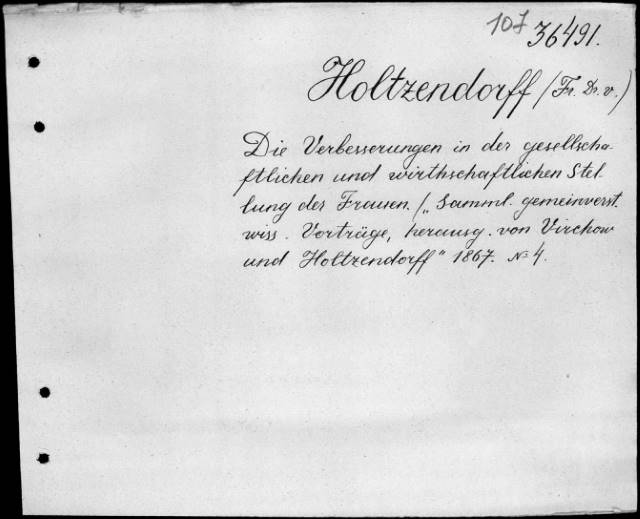 107 36491.
Holtzendorff (Fr. Dr. v.)
Die Verbesserungen in der gesellscha-
ftlichen und wirthschaftlichen Stel-
lung der Frauen. (" Samml. gemeinverst.
wiss. Vorträge, herausg. von Virchow
und Holtzendorff" 1867. № 4.